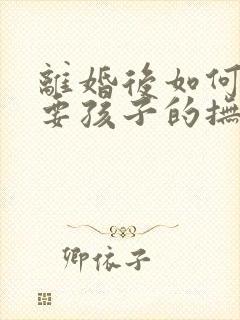 離婚後如何
要孩子的撫
卿依子